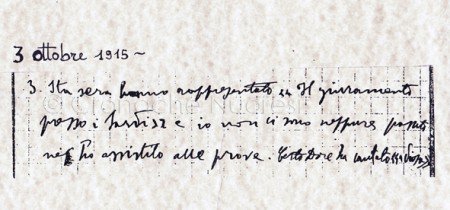 3 ottobre 1915 ~
3. Sta sera hanno rappresentato «Il giuramento
presso i e io non ci sono neppure passato
nè ho assistito alle prove. ha
© Cronache Nuoresi